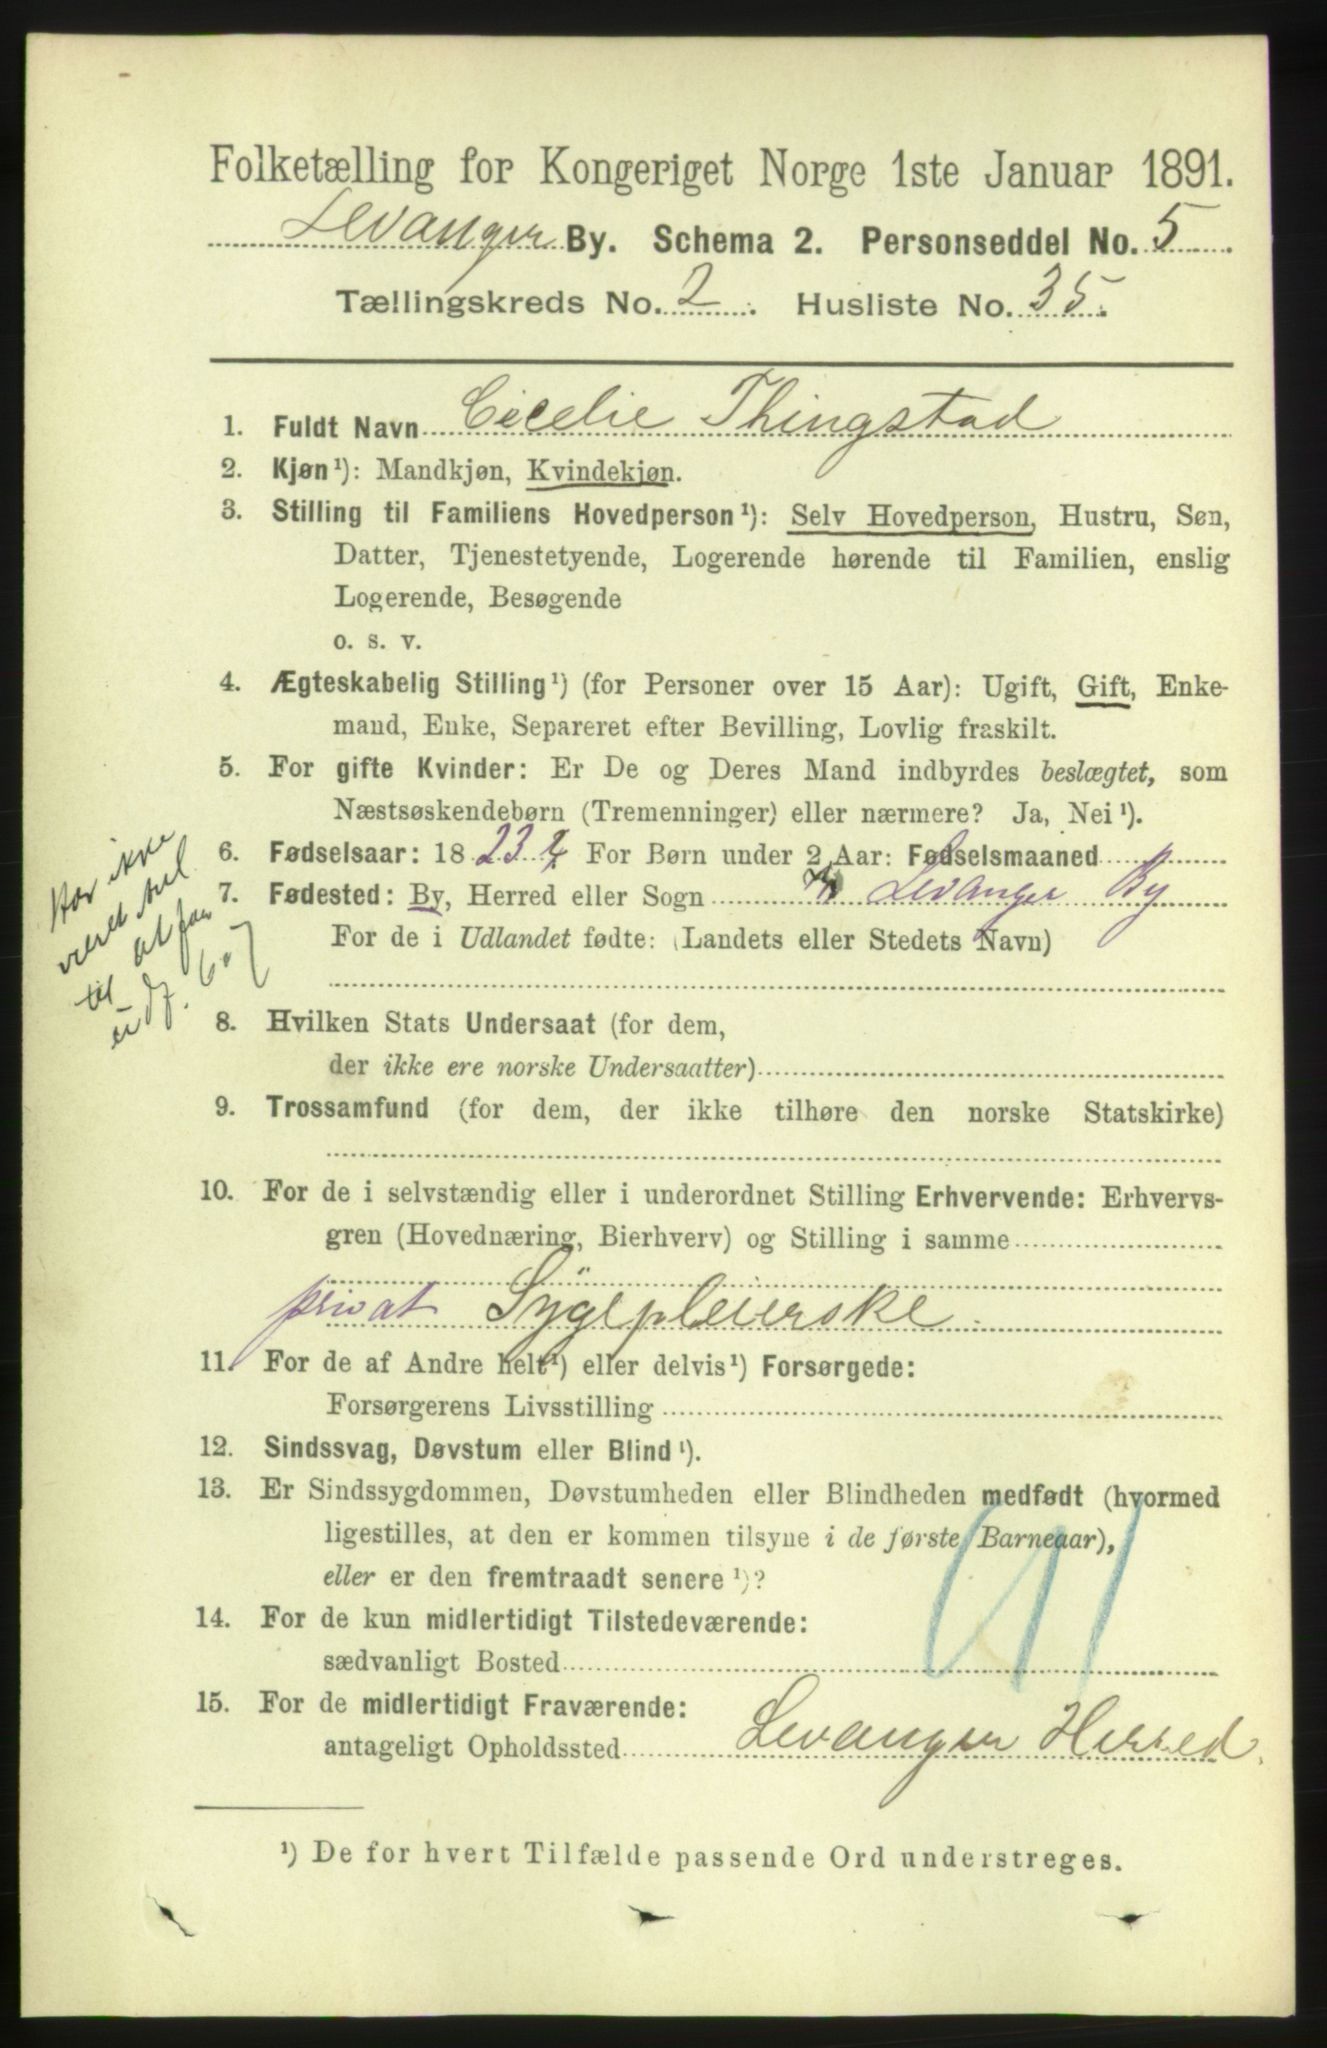 Folketælling for Kongeriget Norge 1ste Januar 1891.
Levanger By. Schema 2. Personseddel No. 5
Tællingskreds No. 2. Husliste No. 35.
1. Fuldt Navn Cecelie Thingstad
2. Kjøn¹): Mandkjøn, Kvindekjøn.
3. Stilling til Familiens Hovedperson¹): Selv Hovedperson, Hustru, Søn,
Datter, Tjenestetyende, Logerende hørende til Familien, enslig
Logerende, Besøgende
o. s. v.
4. Ægteskabelig Stilling¹) (for Personer over 15 Aar): Ugift, Gift, Enke-
mand, Enke, Separeret efter Bevilling, Lovlig fraskilt.
5. For gifte Kvinder: Er De og Deres Mand indbyrdes beslægtet, som
Næstsøskendebørn (Tremenninger) eller nærmere? Ja, Nei¹).
6. Fødselsaar: 1823 For Børn under 2 Aar: Fødselsmaaned
7. Fødested: By, Herred eller Sogn Levanger By
For de i Udlandet fødte: (Landets eller Stedets Navn)
Har ikke
været
til at faa
6. 7
8. Hvilken Stats Undersaat (for dem,
der ikke ere norske Undersaatter)
9. Trossamfund (for dem, der ikke tilhøre den norske Statskirke)
10. For de i selvstændig eller i underordnet Stilling Erhvervende: Erhvervs-
gren (Hovednæring, Bierhverv) og Stilling i samme
privat Sygepleierske.
11. For de af Andre helt¹) eller delvis¹) Forsørgede:
Forsørgerens Livsstilling
12. Sindssvag, Døvstum eller Blind¹).
13. Er Sindssygdommen, Døvstumheden eller Blindheden medfødt (hvormed
ligestilles, at den er kommen tilsyne i de første Barneaar),
eller er den fremtraadt senere¹)?
14. For de kun midlertidigt Tilstedeværende:
sædvanligt Bosted
15. For de midlertidigt Fraværende:
antageligt Opholdssted Levanger Herred.
¹) De for hvert Tilfælde passende Ord understreges.